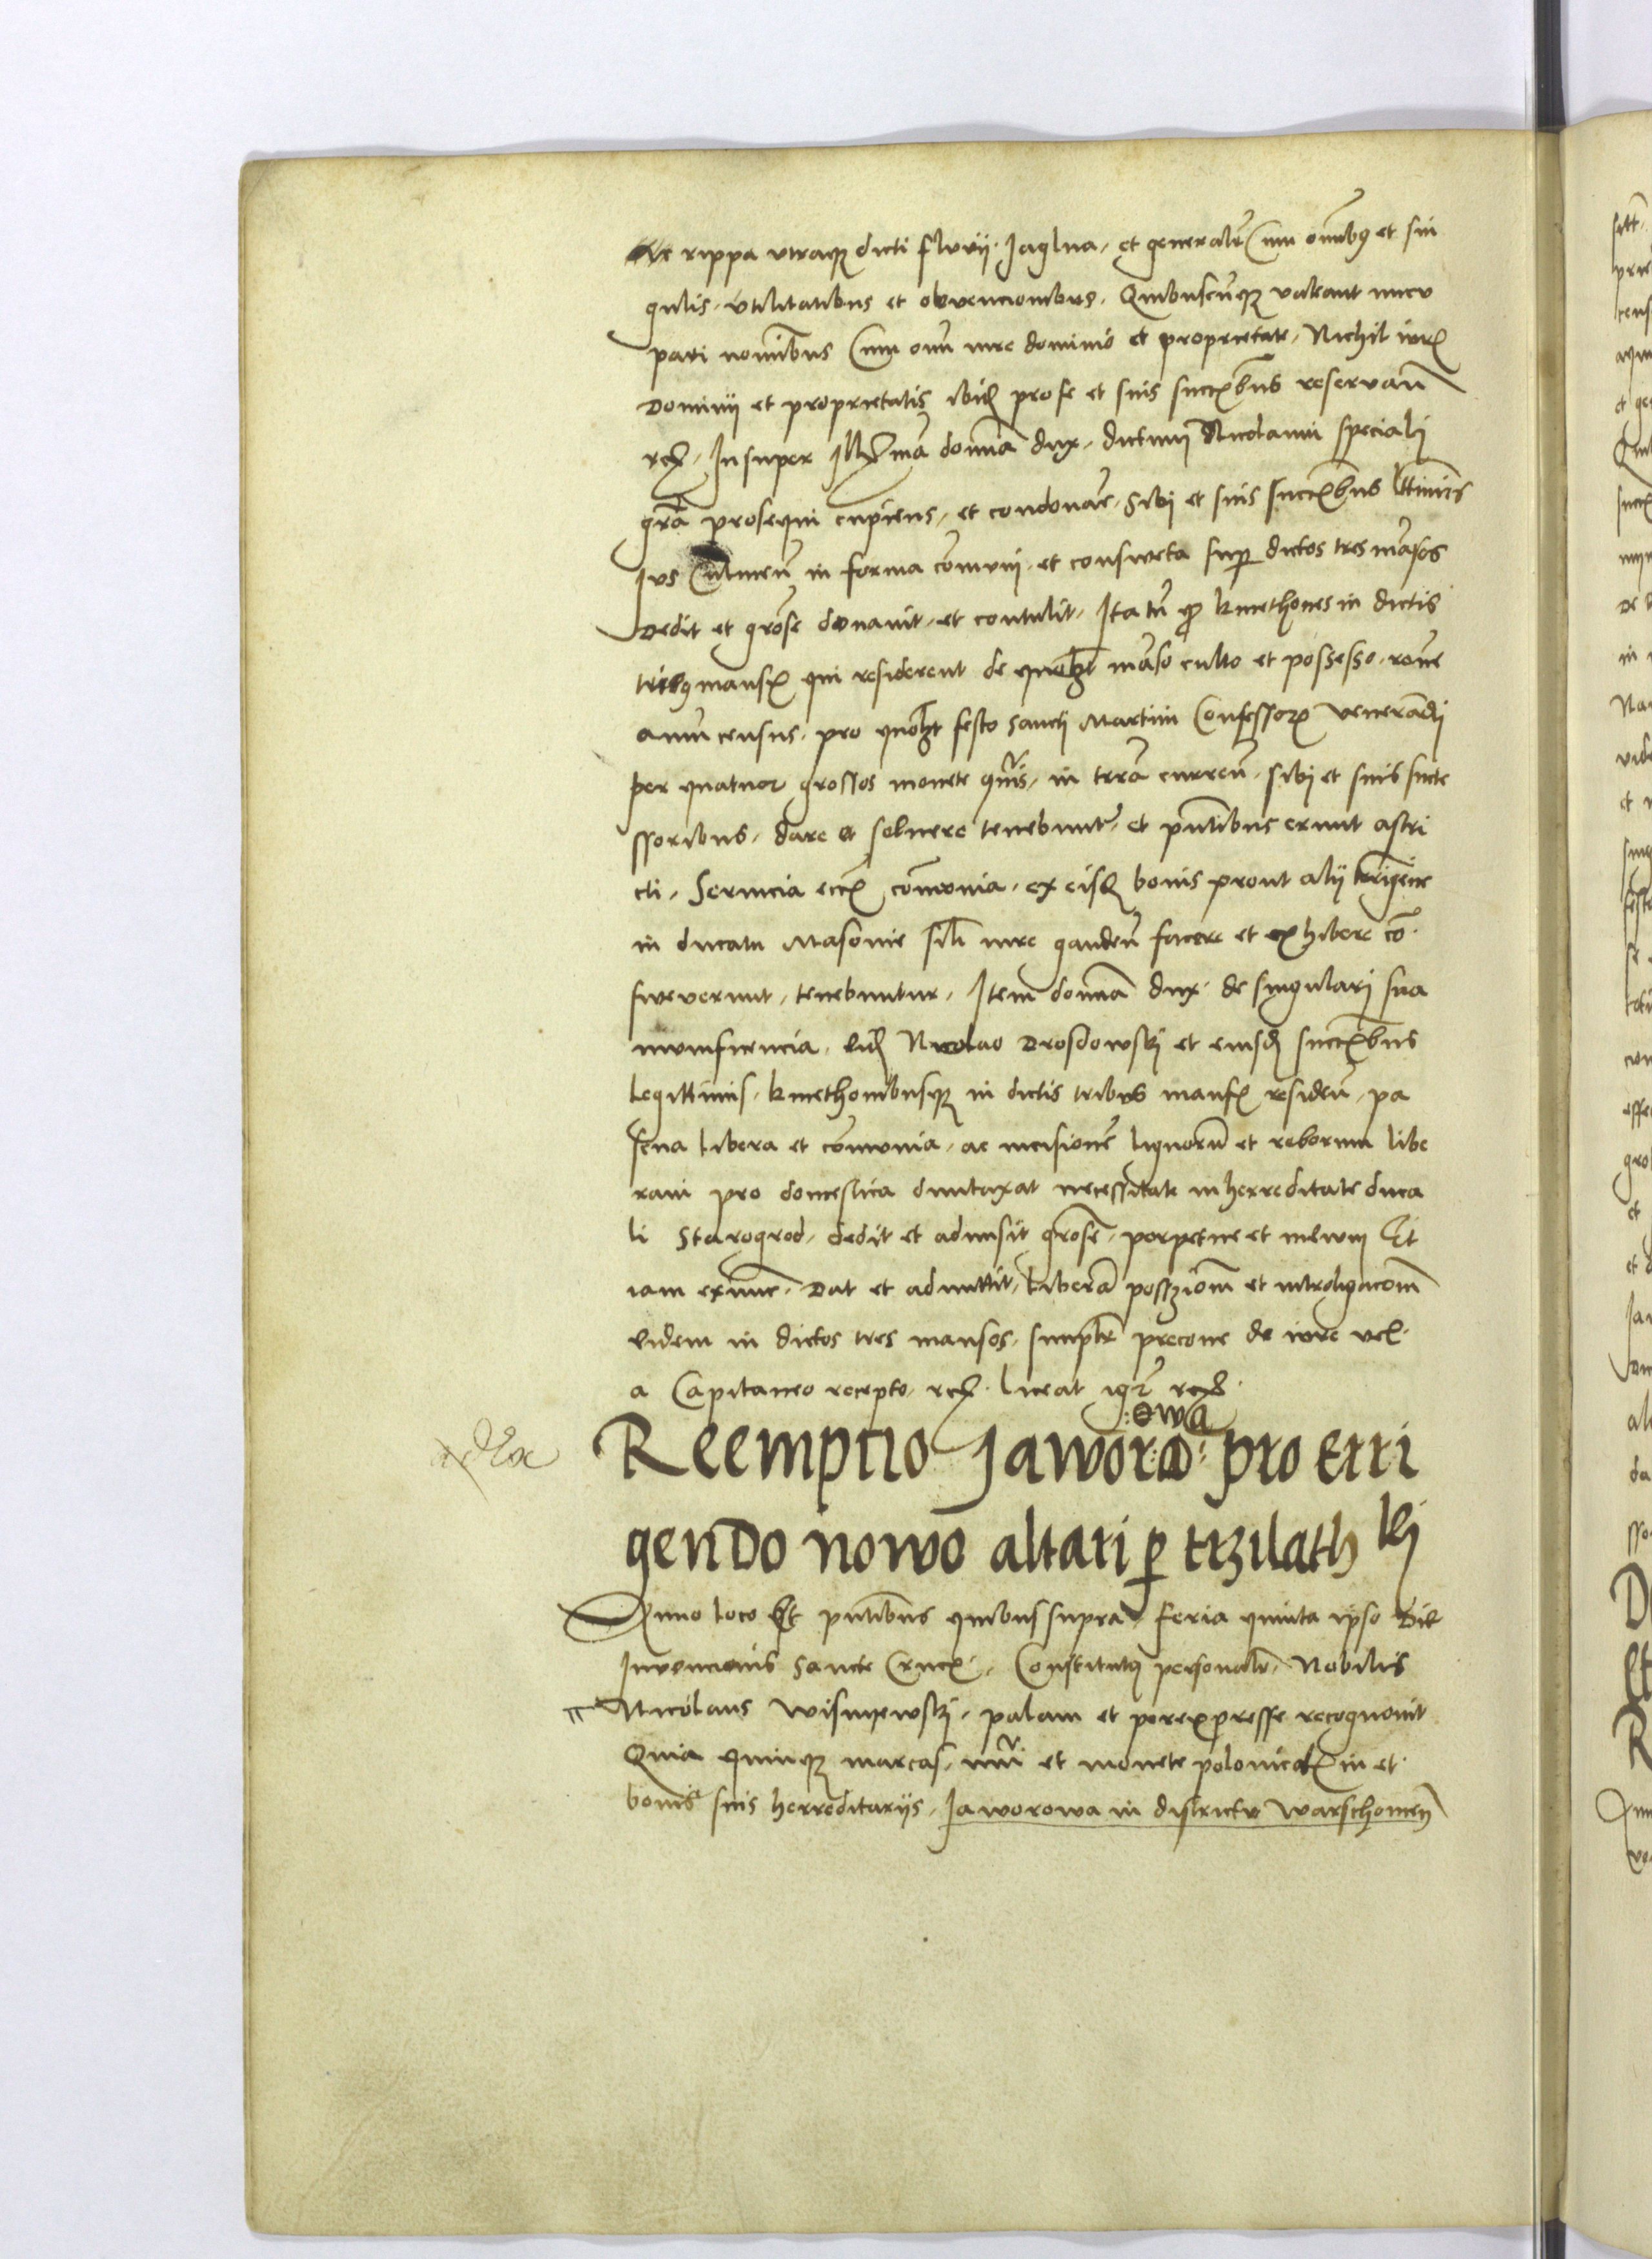 de rippa utraq dicti fluvij Jaglna, et generalr Cum omibq et sin
gulis utilitatibus et obvencionibus Quibuscunq valeant nuncu
pari nominibus Cum omi iure dominio et proprietate, Nichil iuris
Dominij et proprietatis ibid pro se et suis succribus reservan
rc, Insuper Illma domna dux, dictum Nicolaum speciali
gra prosequi cupiens, et condonare, Sibi et suis succribus lttimis
Jus Culmen in forma comuni, et consweta sup dictos tres mansos
Dedit et grose donavit, et contulit, Ita tn q kmethones in dictis
tribq mansis qui residerent de quolzt manso culto et possesso, rone
annui census, pro quolzt festo sancti Martini Confessoris Venerandi
per quatuor grossos monete in terra curren, sibi et suis succe
ssoribus, dare et solvere tenebuntur, et pntibus erunt astri
cti, Servicia comunia, ex eisd bonis prout alij terrigene
in ducatu Masovie sili iure gauden facere et exhibere co
sweverunt, tenebuntur, Item domna dux de singulari sua
munificencia, eid Nicolao Drosdowski et eiusd succribus
Legittimis, kmethonibusq in dictis tribus mansis residen, pa
scua libera et comunia, ac incisione lignoru et roborum libe
ram pro domestica dumtaxat necessitate in herreditate duca
li Starogrod, dedit et admisit grose, perpetue et in ewm Et
iam exnunc, Dat et admittit, libera possziom et intrologacom
eidem in dictos tres mansos, sumptr precone de iure vel
a Capitaneo recepto, rc liceat igr
adEx
Reemptio Jaworowa pro erri
gendo nowo altari p trzilathki
Anno loco Et pntibus quibus supra, feria quinta ipso Die
Invencionis Sancte Crucis, Constitutq personalr, Nobilis
Nicolaus Wisnyewski, palam et perexpresse recognovit
Quia quinq marcas, nui et monete polonicalis in et
bonis suis herreditarijs, Jaworowa in districtu Warschowien